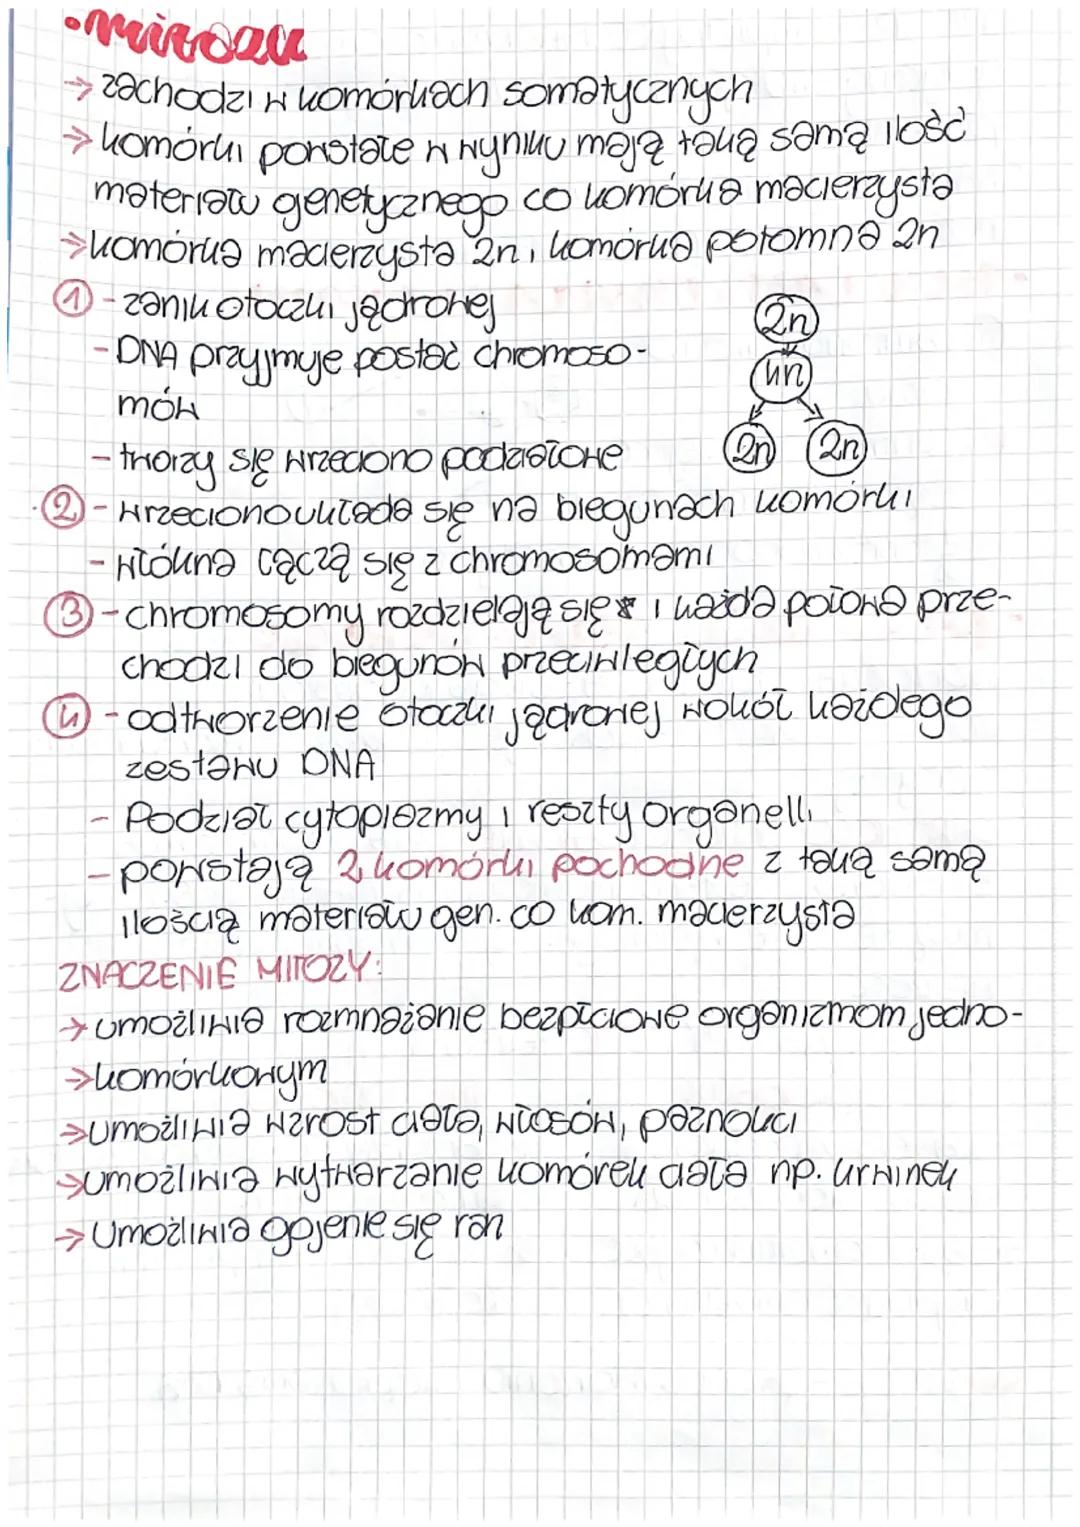 • mitoza
→ zachodzi w komórkach somatycznych
→ komórki powstałe w wyniku mają taką samą ilość
materiału genetycznego co komórka macierzysta
→ komórka macierzysta 2n, komórka potomna 2n
① - zanik otoczki jądrowej
- DNA przyjmuje postać chromoso-
mów
- tworzy się wrzeciono podziałowe
2n
4n
2n 2n
② - wrzeciono układa się na biegunach komórki
- włókna łączą się z chromosomami
③ - chromosomy rozdzielają się i każda połowa prze-
chodzi do biegunów przeciwległych
④ - odtworzenie otoczki jądrowej wokół każdego
zestawu DNA
- Podział cytoplazmy i reszty organelli
- powstają 2 komórki pochodne z taką samą
ilością materiału gen. co kom. macierzysta
ZNACZENIE MITOZY:
→ umożliwia rozmnażanie bezpłciowe organizmom jedno-
→ komórkowym
→ umożliwia wzrost ciała, włosów, paznokci
→ umożliwia wytwarzanie komórek ciała np. krwinek
→ Umożliwia gojenie się ran